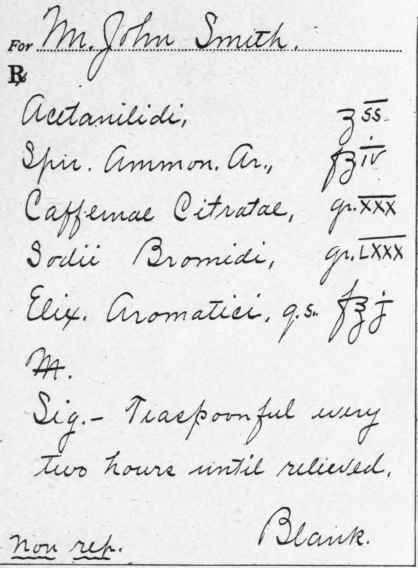 For Mr. John Smith.
℞
Acetanilidi, ʒ ss
Spir. Ammon. Ar., fʒ iv
Caffeinae Citratae, gr. xxx
Sodii Bromidi, gr. Lxxx
Elix. Aromatici, q.s. f℥ j
M.
Sig.- Teaspoonful every
two hours until relieved.
Blank.
Non rep.